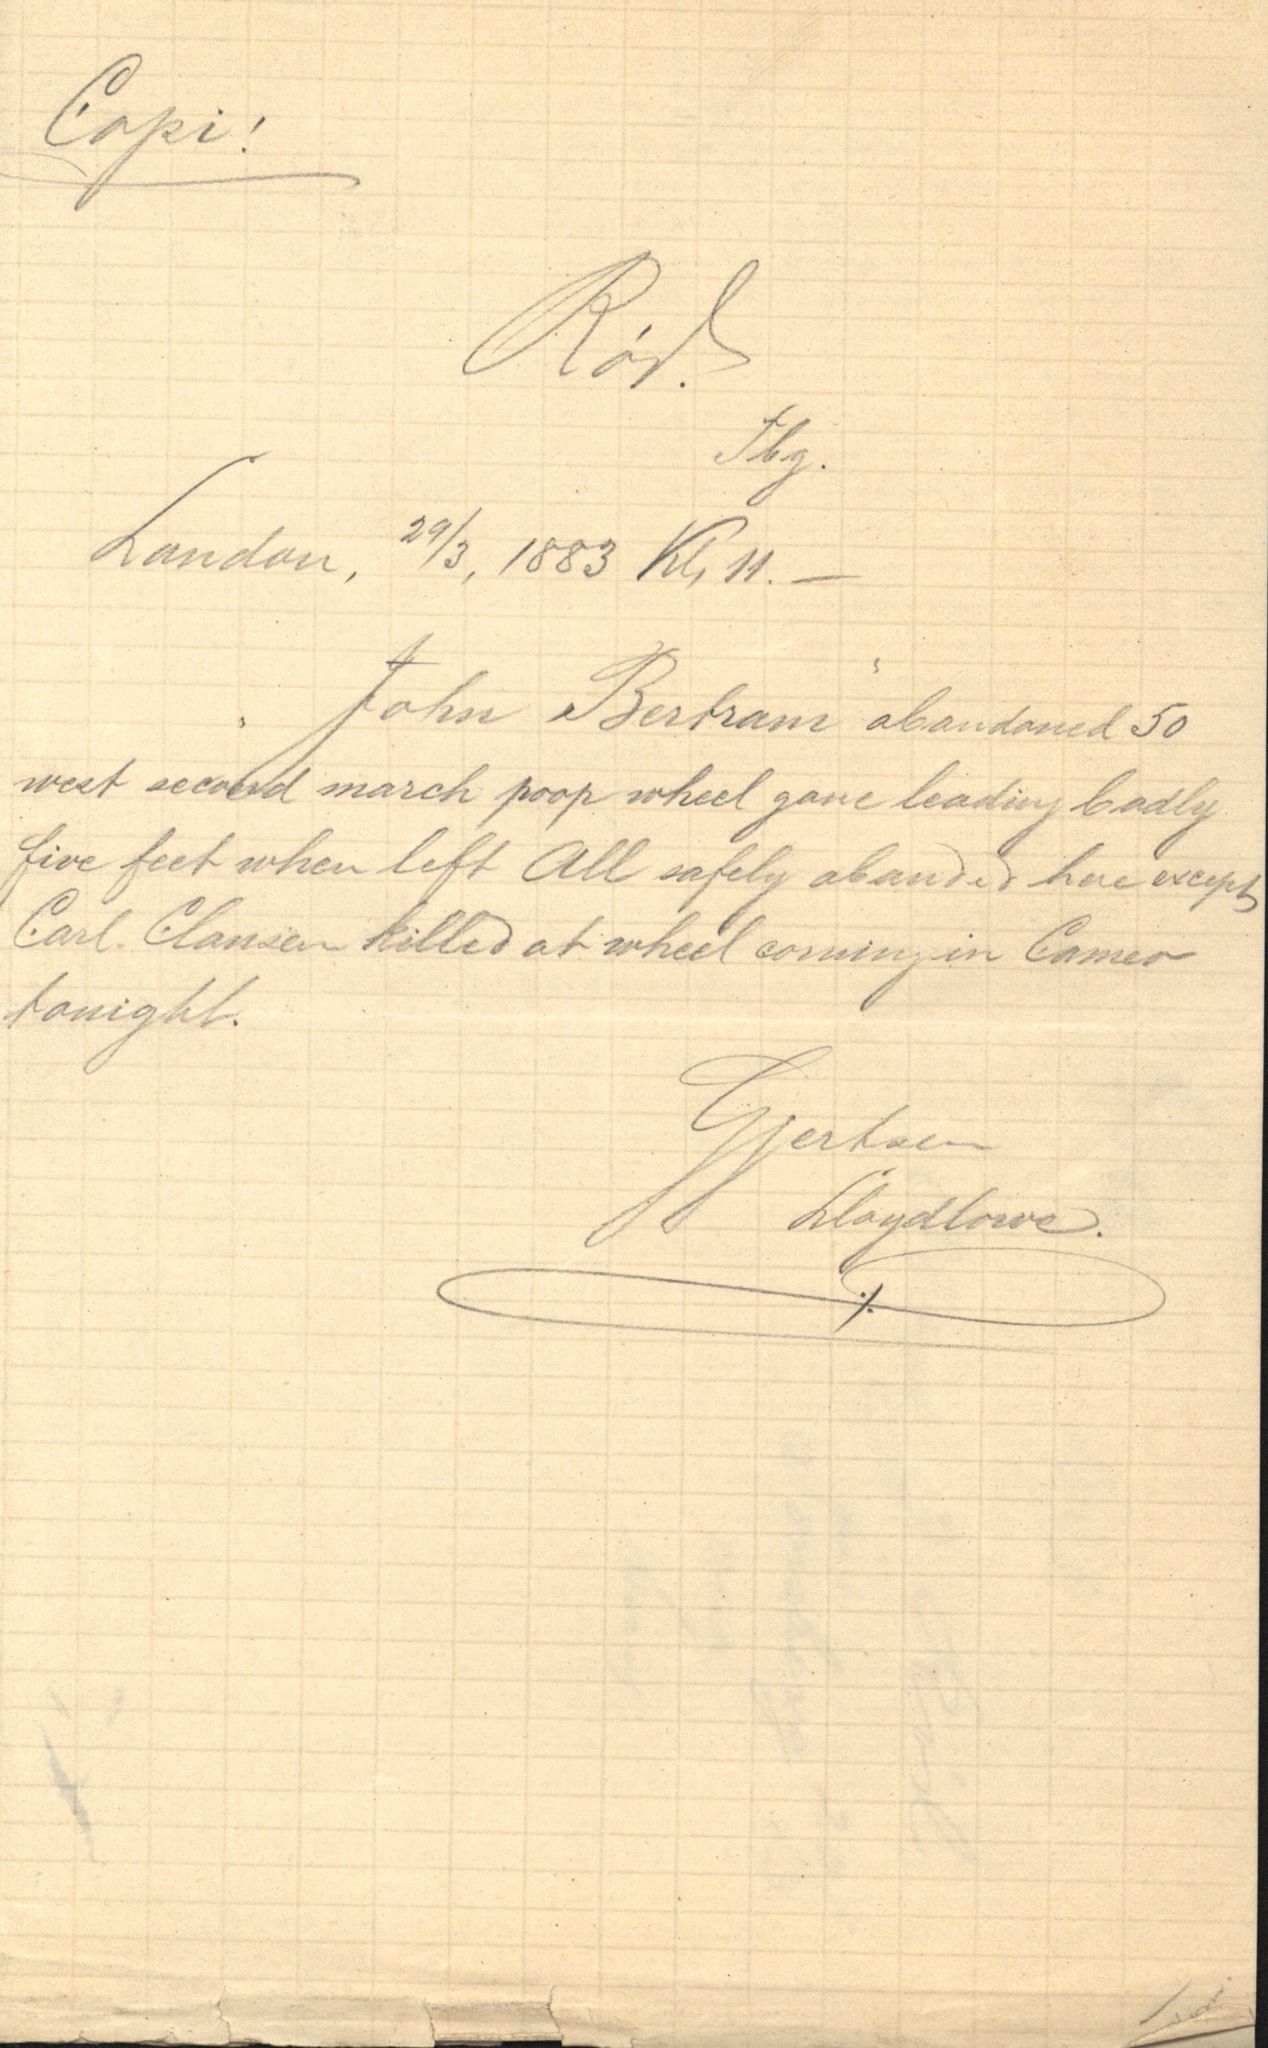 Copi!
Röd.
Tbg.
London, 29/3, 1883 Kl, 11. —
"John Bertram" abandoned 50
west second march poop wheel gone leading badly
five feet when left All safely abanded here except
Carl. Clausen killed at wheel coming in Cameo
tonight.
Gjertsen
Lloydlowe.